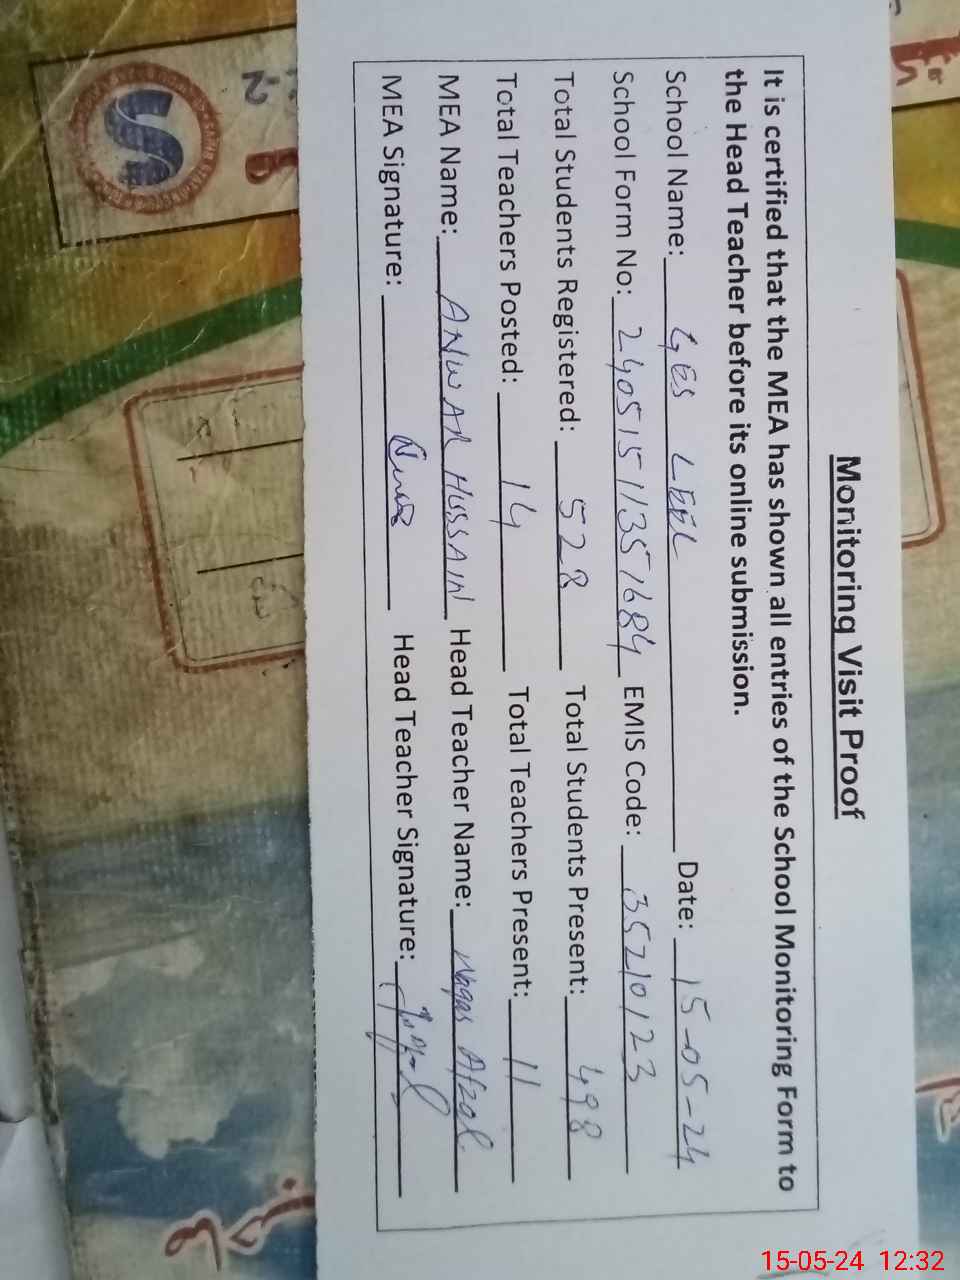 Monitoring Visit Proof
It is certified that the MEA has shown all entries of the School Monitoring Form to
the Head Teacher before its online submission.
School Name: GES LEEL Date: 15-05-24
School Form No: 24051511351684 EMIS Code: 35210123
Total Students Registered: 528 Total Students Present: 498
Total Teachers Posted: 14 Total Teachers Present: 11
MEA Name: ANWAR HUSSAIN Head Teacher Name: Waqas Afzal
MEA Signature: Head Teacher Signature:
15-05-24 12:32